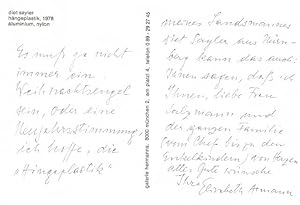 diet sayler
hängeplastik, 1978
aluminium, nylon
Es muß ja nicht
immer ein
Weihnachtsengel
sein, oder eine
Neujahrsstimmung,
ich hoffe, die
"Hängeplastik"
galerie hermanns, 8000 münchen 2, am platzl 4, telefon 0 89 - 29 37 45
meines Landsmannes
diet Sayler aus Nürn-
berg kann das auch:
Ihnen sagen, daß ich
Ihnen, liebe Frau
Salzmann und
der ganzen Familie
(vom Chef bis zu den
Enkelkindern) von Herzen
alles Gute wünsche
Ihre
Elisabeth Axmann